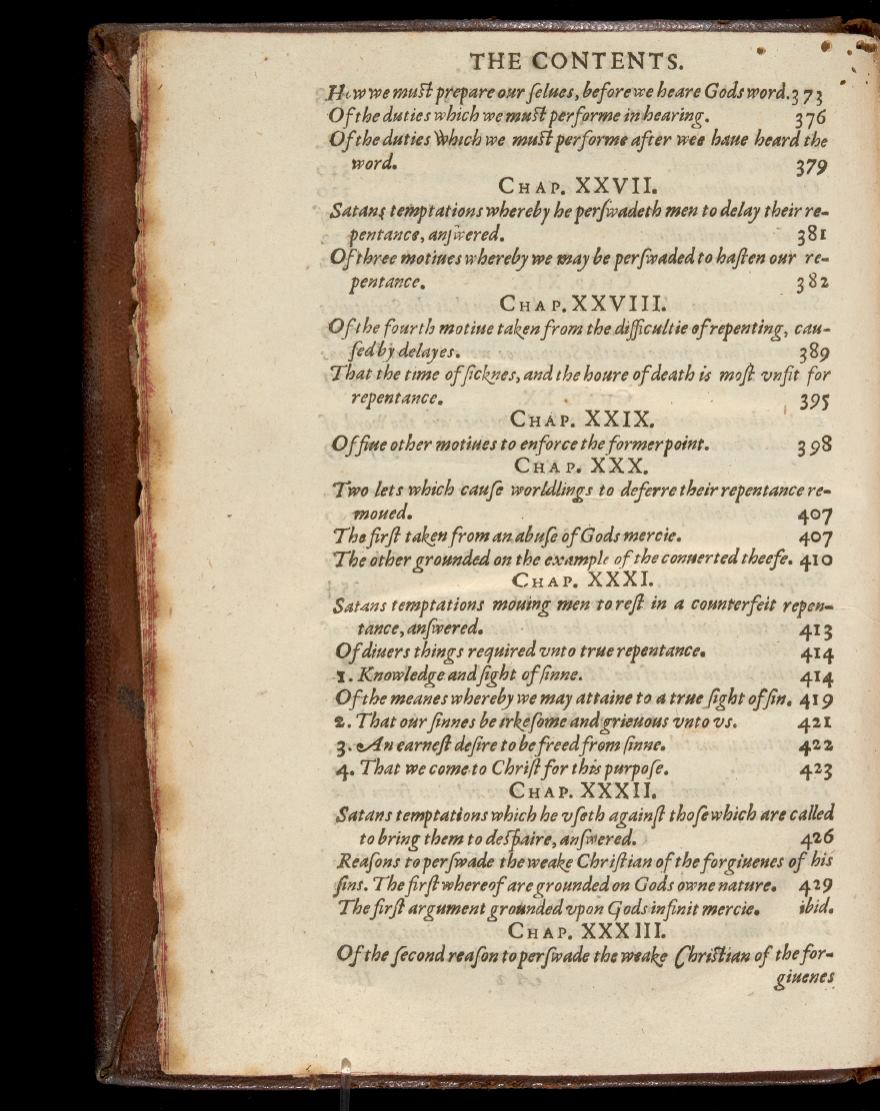 THE CONTENTS.
How we muſt prepare our ſelues, before we heare Gods word. 373
Of the duties which we muſt performe in hearing. 376
Of the duties which we muſt performe after wee haue heard the
word. 379
CHAP. XXVII.
Satans temptations whereby he perſwadeth men to delay their re-
pentance, anſwered. 381
Of three motiues whereby we may be perſwaded to haſten our re-
pentance. 382
CHAP. XXVIII.
Of the fourth motiue taken from the difficultie of repenting, cau-
ſed by delayes. 389
That the time of ſicknes, and the houre of death is moſt vnfit for
repentance. 395
CHAP. XXIX.
Of fiue other motiues to enforce the former point. 398
CHAP. XXX.
Two lets which cauſe worldlings to deferre their repentance re-
moued. 407
The firſt taken from an abuſe of Gods mercie. 407
The other grounded on the example of the conuerted theefe. 410
CHAP. XXXI.
Satans temptations mouing men to reſt in a counterfeit repen-
tance, anſwered. 413
Of diuers things required vnto true repentance. 414
1. Knowledge and ſight of ſinne. 414
Of the meanes whereby we may attaine to a true ſight of ſin. 419
2. That our ſinnes be irkeſome and grieuous vnto vs. 421
3. An earneſt deſire to be freed from ſinne. 422
4. That we come to Chriſt for this purpoſe. 423
CHAP. XXXII.
Satans temptations which he vſeth againſt thoſe which are called
to bring them to deſpaire, anſwered. 426
Reaſons to perſwade the weake Chriſtian of the forgiuenes of his
ſins. The firſt whereof are grounded on Gods owne nature. 429
The firſt argument grounded vpon Gods infinit mercie. ibid.
CHAP. XXXIII.
Of the ſecond reaſon to perſwade the weake Chriſtian of the for-
giuenes